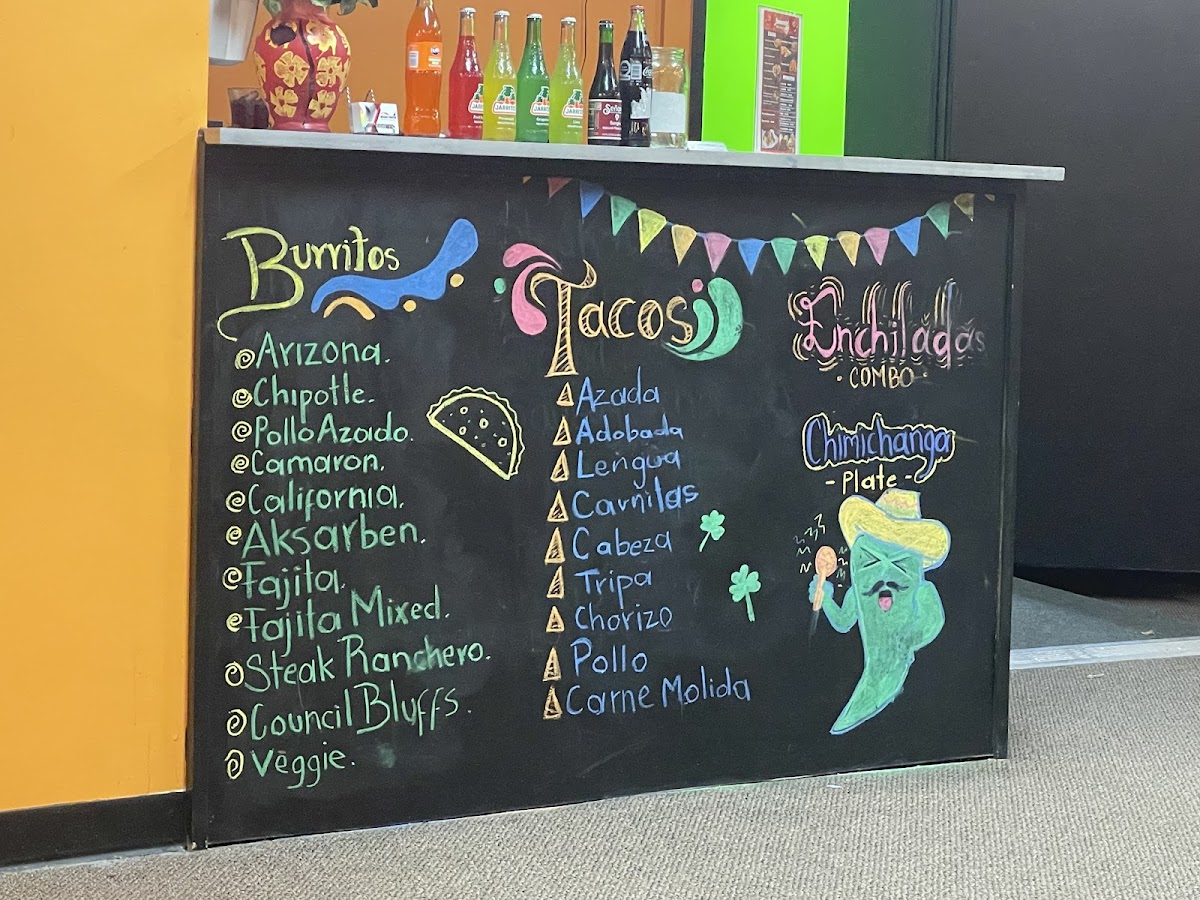 JARRITOS
JARRITOS
JARRITOS
JARRITOS
Burritos
Arizona.
Chipotle.
Pollo Azado.
Camaron.
California.
Aksarben.
Fajita.
Fajita Mixed.
Steak Ranchero.
Council Bluffs.
Veggie.
Tacos
Azada
Adobada
Lengua
Carnilas
Cabeza
Tripa
Chorizo
Pollo
Carne Molida
Enchiladas
· COMBO ·
Chimichanga
- Plate -